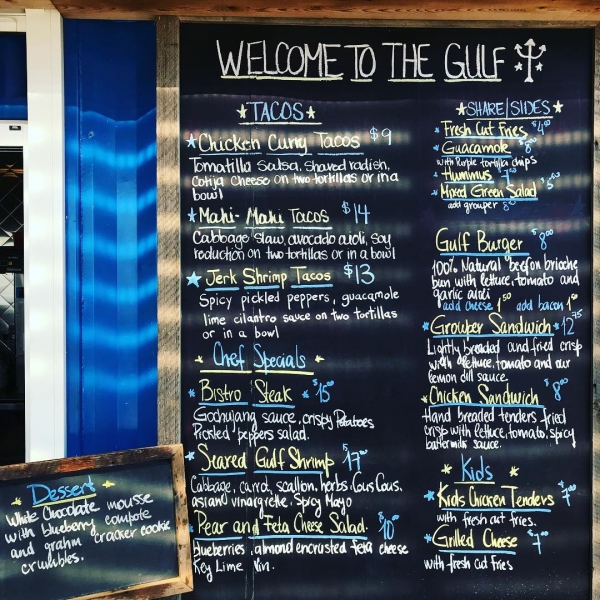 WELCOME TO THE GULF
TACOS
Chicken Curry Tacos $9
Tomatilla Salsa, shaved radish,
Cotija Cheese on two tortillas or in a
bowl
Mahi-Mahi Tacos $14
Cabbage slaw, avocado aioli, soy
reduction on two tortillas or in a bowl
Jerk Shrimp Tacos $13
Spicy pickled peppers, guacamole
lime cilantro sauce on two tortillas
or in a bowl
Chef Specials
Bistro Steak $15
Gochujang sauce, crispy Potatoes
Pickled peppers salad.
Seared Gulf Shrimp $17
Cabbage, carrot, scallion, herbs, Cous Cous,
asian vinaigrette, Spicy Mayo
Pear and Feta Cheese Salad. $10
blueberries, almond encrusted feta cheese
Key Lime Vin.
SHARE/SIDES
Fresh Cut Fries $4.00
Guacamole
with Purple tortilla chips
Hummus
Mixed Green Salad
add grouper
Gulf Burger $8.00
100% Natural beef on brioche
bun with lettuce, tomato and
garlic aioli
add cheese 1.50 add bacon
Grouper Sandwich $12.75
Lightly breaded and fried crisp
with lettuce, tomato and our
lemon dill sauce.
Chicken Sandwich $8.00
Hand breaded tenders fried
crisp with lettuce, tomato, spicy
buttermilk sauce.
Kids
Kids Chicken Tenders $7.00
with fresh cut fries.
Grilled Cheese $7.00
with fresh cut fries
Dessert
White Chocolate mousse
with blueberry compote
and grahm cracker cookie
crumbles.